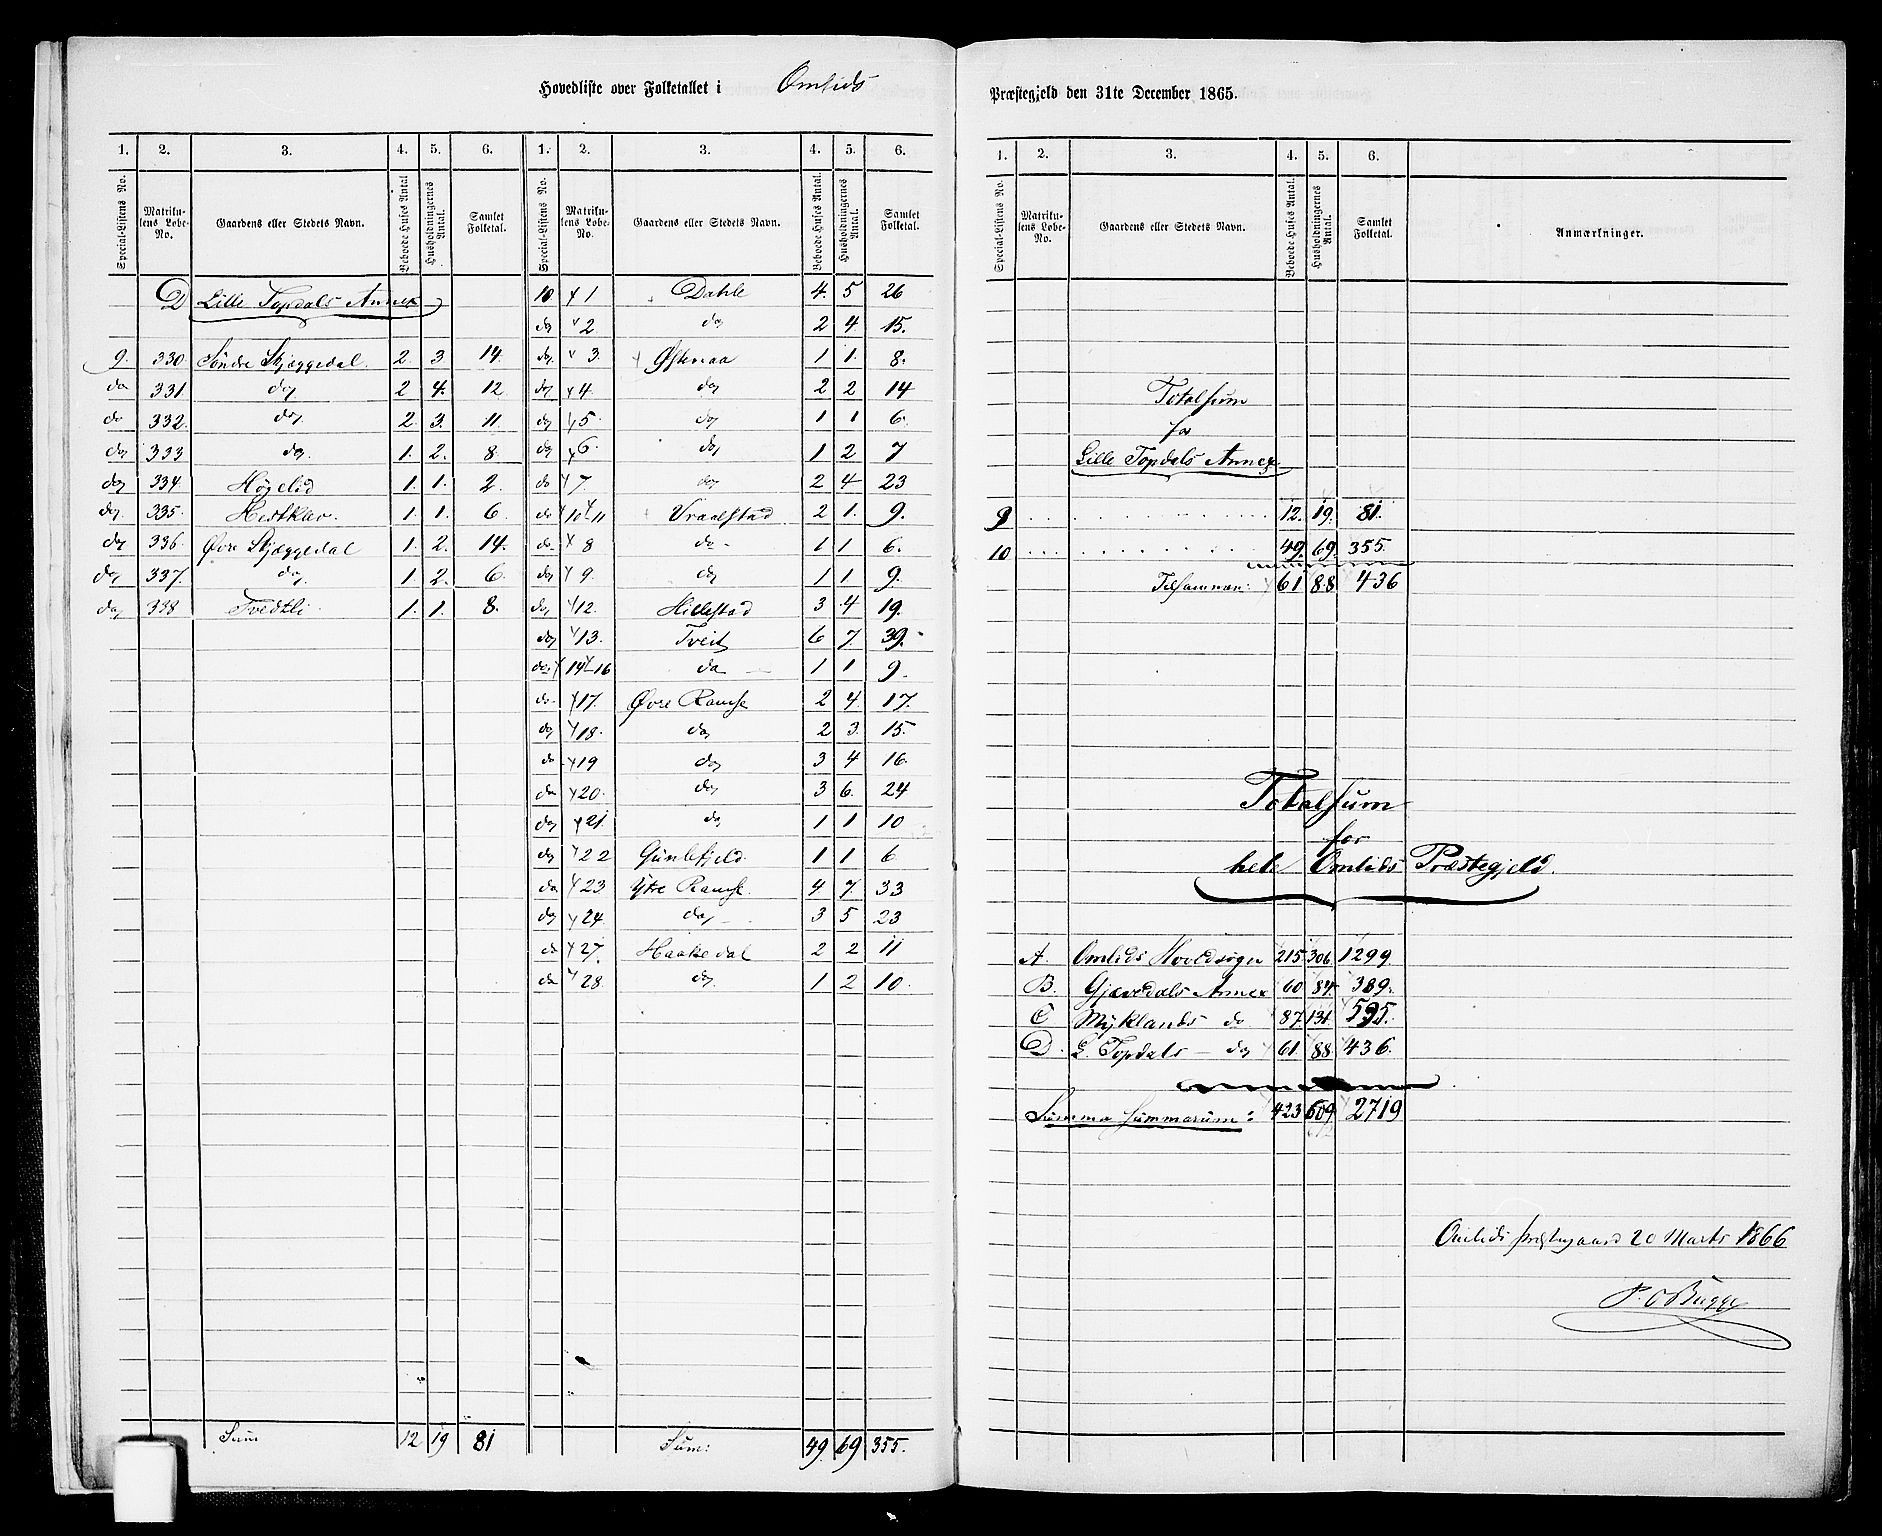 Hovedliste over Folketallet i Omlids
1. 2. 3. 4. 5. 6. 1. 2. 3. 4. 5. 6.
Special-Listens No. Matrikulens Løbe-No. Gaardens eller Stedets Navn. Beboede Huses Antal Husholdningernes Antal. Samlet Folketal. Special-Listens No. Matrikulens Løbe-No. Gaardens eller Stedets Navn. Beboede Huses Antal. Husholdningernes Antal. Samlet Folketal.
D Lille Topdals Annex
9. 330 Søndre Skjæggedal. 2. 3. 14.
do 331. do 2 4. 12.
do 332. do 2. 3. 11.
do 333 do. 1. 2. 8.
do 334. Høgelid 1. 1. 2.
do. 335. Hestkler. 1. 1. 6.
do 336. Øvre Skjæggedal 1. 2. 14.
do 337. do. 1. 2. 6.
do 338 Tvedtli. 1. 1. 8.
Sum 12 19 81
10 1 Dahle 4. 5 26
do 2 do 2 4. 15.
do. 3. Østenaa 1 1. 8.
do 4. do 2 2 14
do 5. do 1 1 6.
do 6. do 1 2 7
do 7. do 2 4 23
do 10-11 Vraalstad 2 1. 9.
do 8 do 1 1 6.
do 9. do 1 1 9.
do 12. Hillestad 3 4 19.
do 13. Tveit 6 7. 39.
do 14-16 do 1 1 9.
do 17. Øvre Ramse 2 4. 17.
do 18. do 2 3. 15.
do 19 do 3 4 16.
do 20. do 3 6. 24
do 21. do 1 1 10
do 22 Gunlefjeld 1 1 6
do 23 Ytre Ramse. 4 7. 33
do 24. do 3 5 23
do 27. Haakedal 2 2 11
do 28. do. 1 2 10.
Sum: 49. 69 355.
Præstegjeld den 31te December 1865.
1. 2. 3. 4. 5. 6.
Special-Listens No. Matrikulens Løbe-No. Gaardens eller Stedets Navn. Beboede Huses Antal. Husholdningernes Antal. Samlet Folketal. Anmærkninger.
Totalsum
for
Lille Topdals Annex
9 . . . . . . . 12. 19. 81.
10 . . . . . . . 49. 69. 355.
Tilsammen: 61 88 436
Totalsum
for
hele Omlids Præstegjeld.
A. Omlids Hovedsogn 215 306. 1299.
B. Gjævedals Annex 60 84. 389.
C Myklands do 87. 131. 595.
D. L. Topdals - do 61. 88. 436.
Summa Summarum: 423 609 2719
Omlids Præstegaard 20 Marts 1866
P. O Bugge